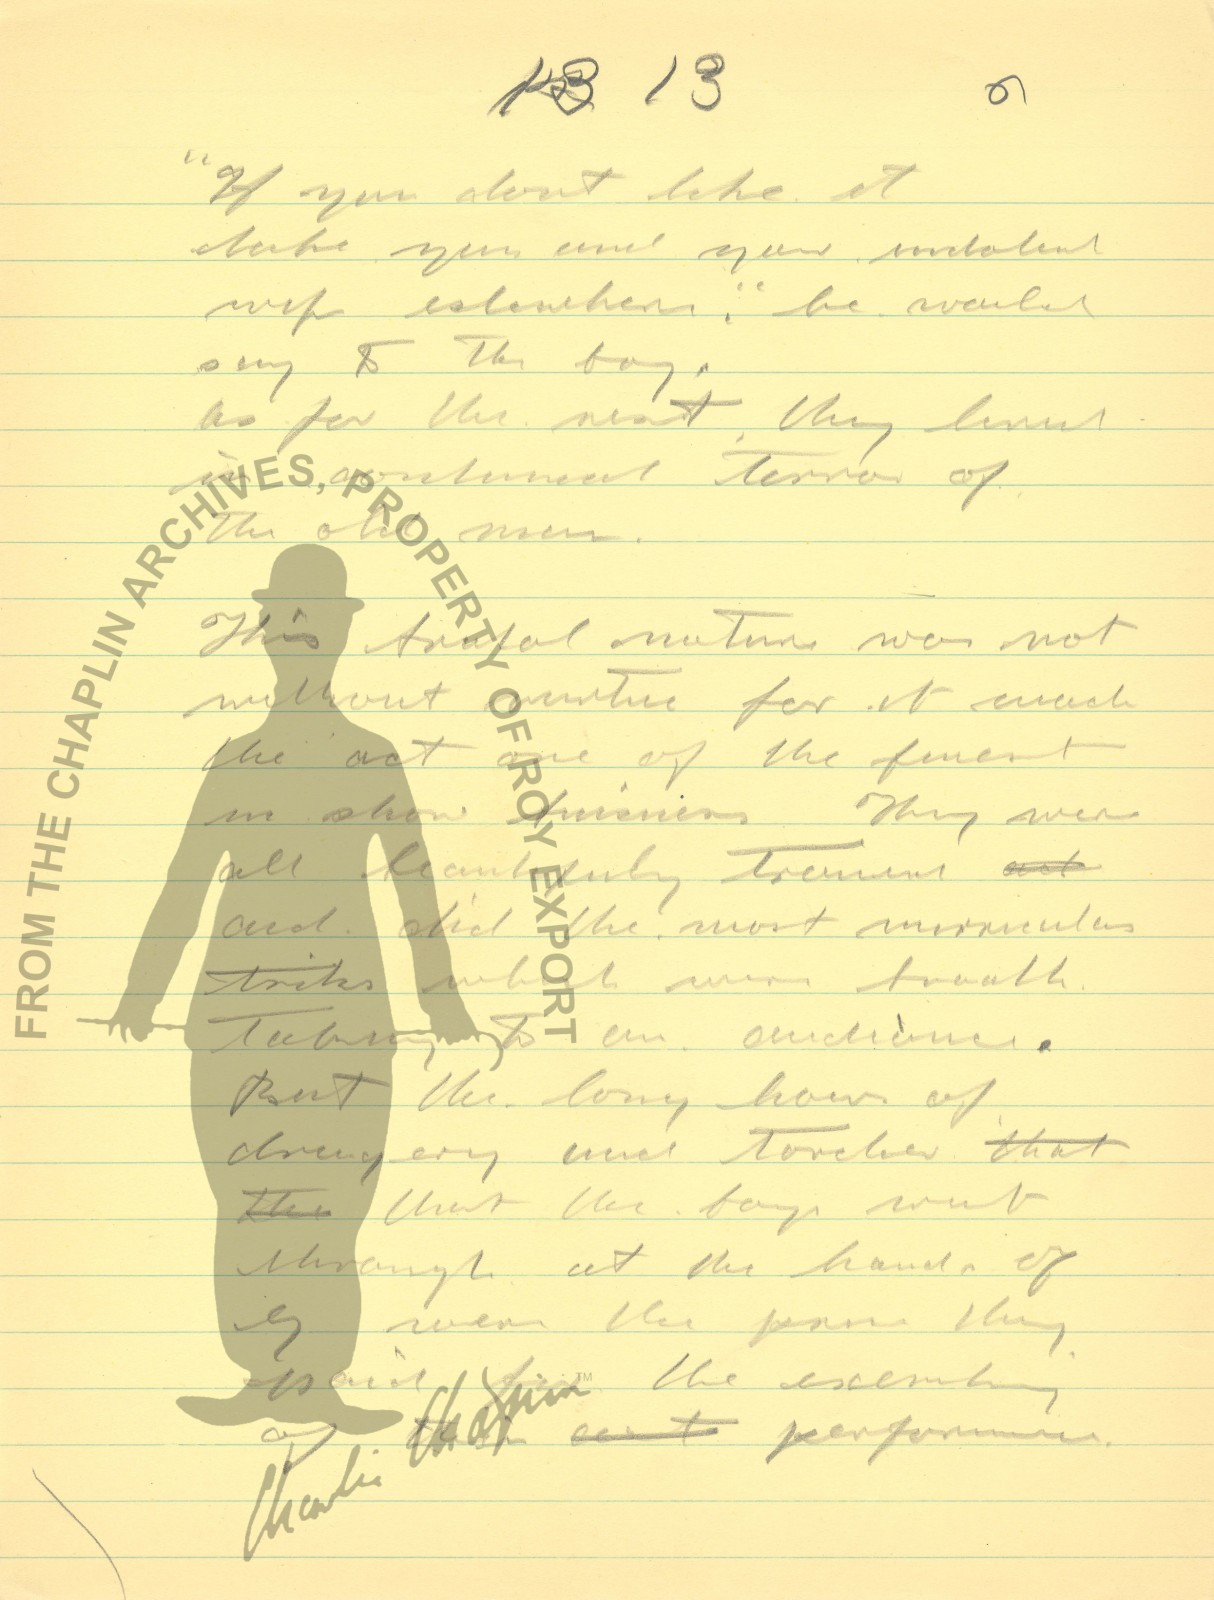 13 13
"If you dont like it
take you and your indolent
wife eslewhere," he would
say to the boy.
as for the rest, they lived
in continual terror of
the old man.
This awful nature was not
without virtue for it made
the act one of the finest
in show buisness They were
all beautifuly trained act
and did the most mirrculas
triks which were breath
taking to an audience.
But the long hours of
drugery and torcher that
the that the boys went
through at the hands of
were the price they
paid for the
of their act performance.
FROM THE CHAPLIN ARCHIVES, PROPERTY OF ROY EXPORT
Charlie Chaplin ™